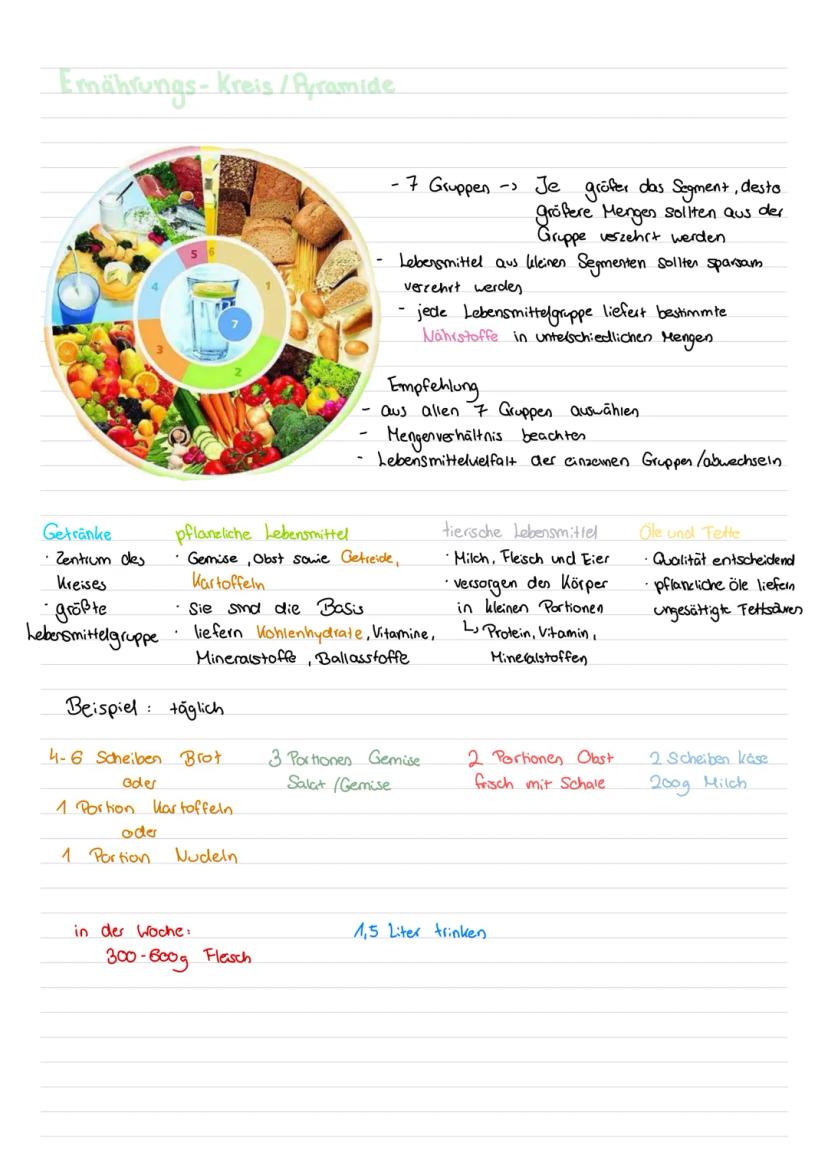 Ernährungs-Kreis/Pyramide
5 6
4 1
7
3
2
- 7 Gruppen -> Je größer das Segment, desto
größere Mengen sollten aus der
Gruppe verzehrt werden
- Lebensmittel aus kleinen Segmenten sollten sparsam
verzehrt werden
- jede Lebensmittelgruppe liefert bestimmte
Nährstoffe in unterschiedlichen Mengen
Empfehlung
- aus allen 7 Gruppen auswählen
- Mengenverhältnis beachten
- Lebensmittelvielfalt der einzelnen Gruppen/abwechseln
Getränke
· Zentrum des
Kreises
· größte
Lebensmittelgruppe
pflanzliche Lebensmittel
· Gemüse, Obst sowie Getreide,
Kartoffeln
· Sie sind die Basis
· liefern Kohlenhydrate, Vitamine,
Mineralstoffe, Ballasstoffe
tierische Lebensmittel
· Milch, Fleisch und Eier
· versorgen den Körper
in kleinen Portionen
↳ Protein, Vitamin,
Mineralstoffen
Öle und Fette
· Qualität entscheidend
· pflanzliche Öle liefern
ungesättigte Fettsäuren
Beispiel: täglich
4-6 Scheiben Brot
oder
1 Portion Kartoffeln
oder
1 Portion Nudeln
3 Portionen Gemüse
Salat/Gemüse
2 Portionen Obst
frisch mit Schale
2 Scheiben Käse
200g Milch
in der Woche:
300-600g Fleisch
1,5 Liter trinken